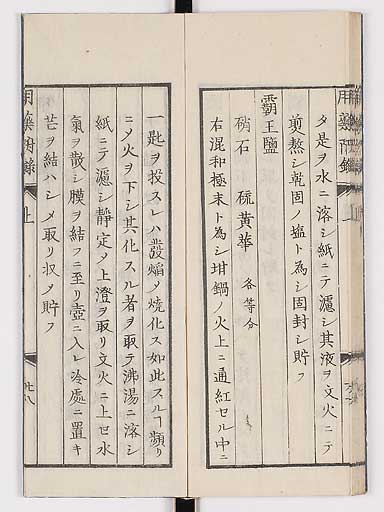 タ是ヲ水ニ溶シ紙ニテ濾シ其液ヲ文火ニテ
煎熬シ乾固ノ塩ト為シ固封シ貯フ
覇王鹽
硝石 硫黄華 各等分
右混和極末ト為シ坩鍋ノ火上ニ通紅セル中ニ
一匙ヲ投スレハ發焔メ焼化ス如此スルヿ頻リ
ニメ火ヲ下シ其化スル者ヲ取テ沸湯ニ溶シ
紙ニテ濾シ静定メ上澄ヲ取リ文火ニ上セ水
氣ヲ散シ膜ヲ結フニ至リ壺ニ入レ冷處ニ置キ
芒ヲ結ハシメ取リ収メ貯フ
用藥附録 上 廿八